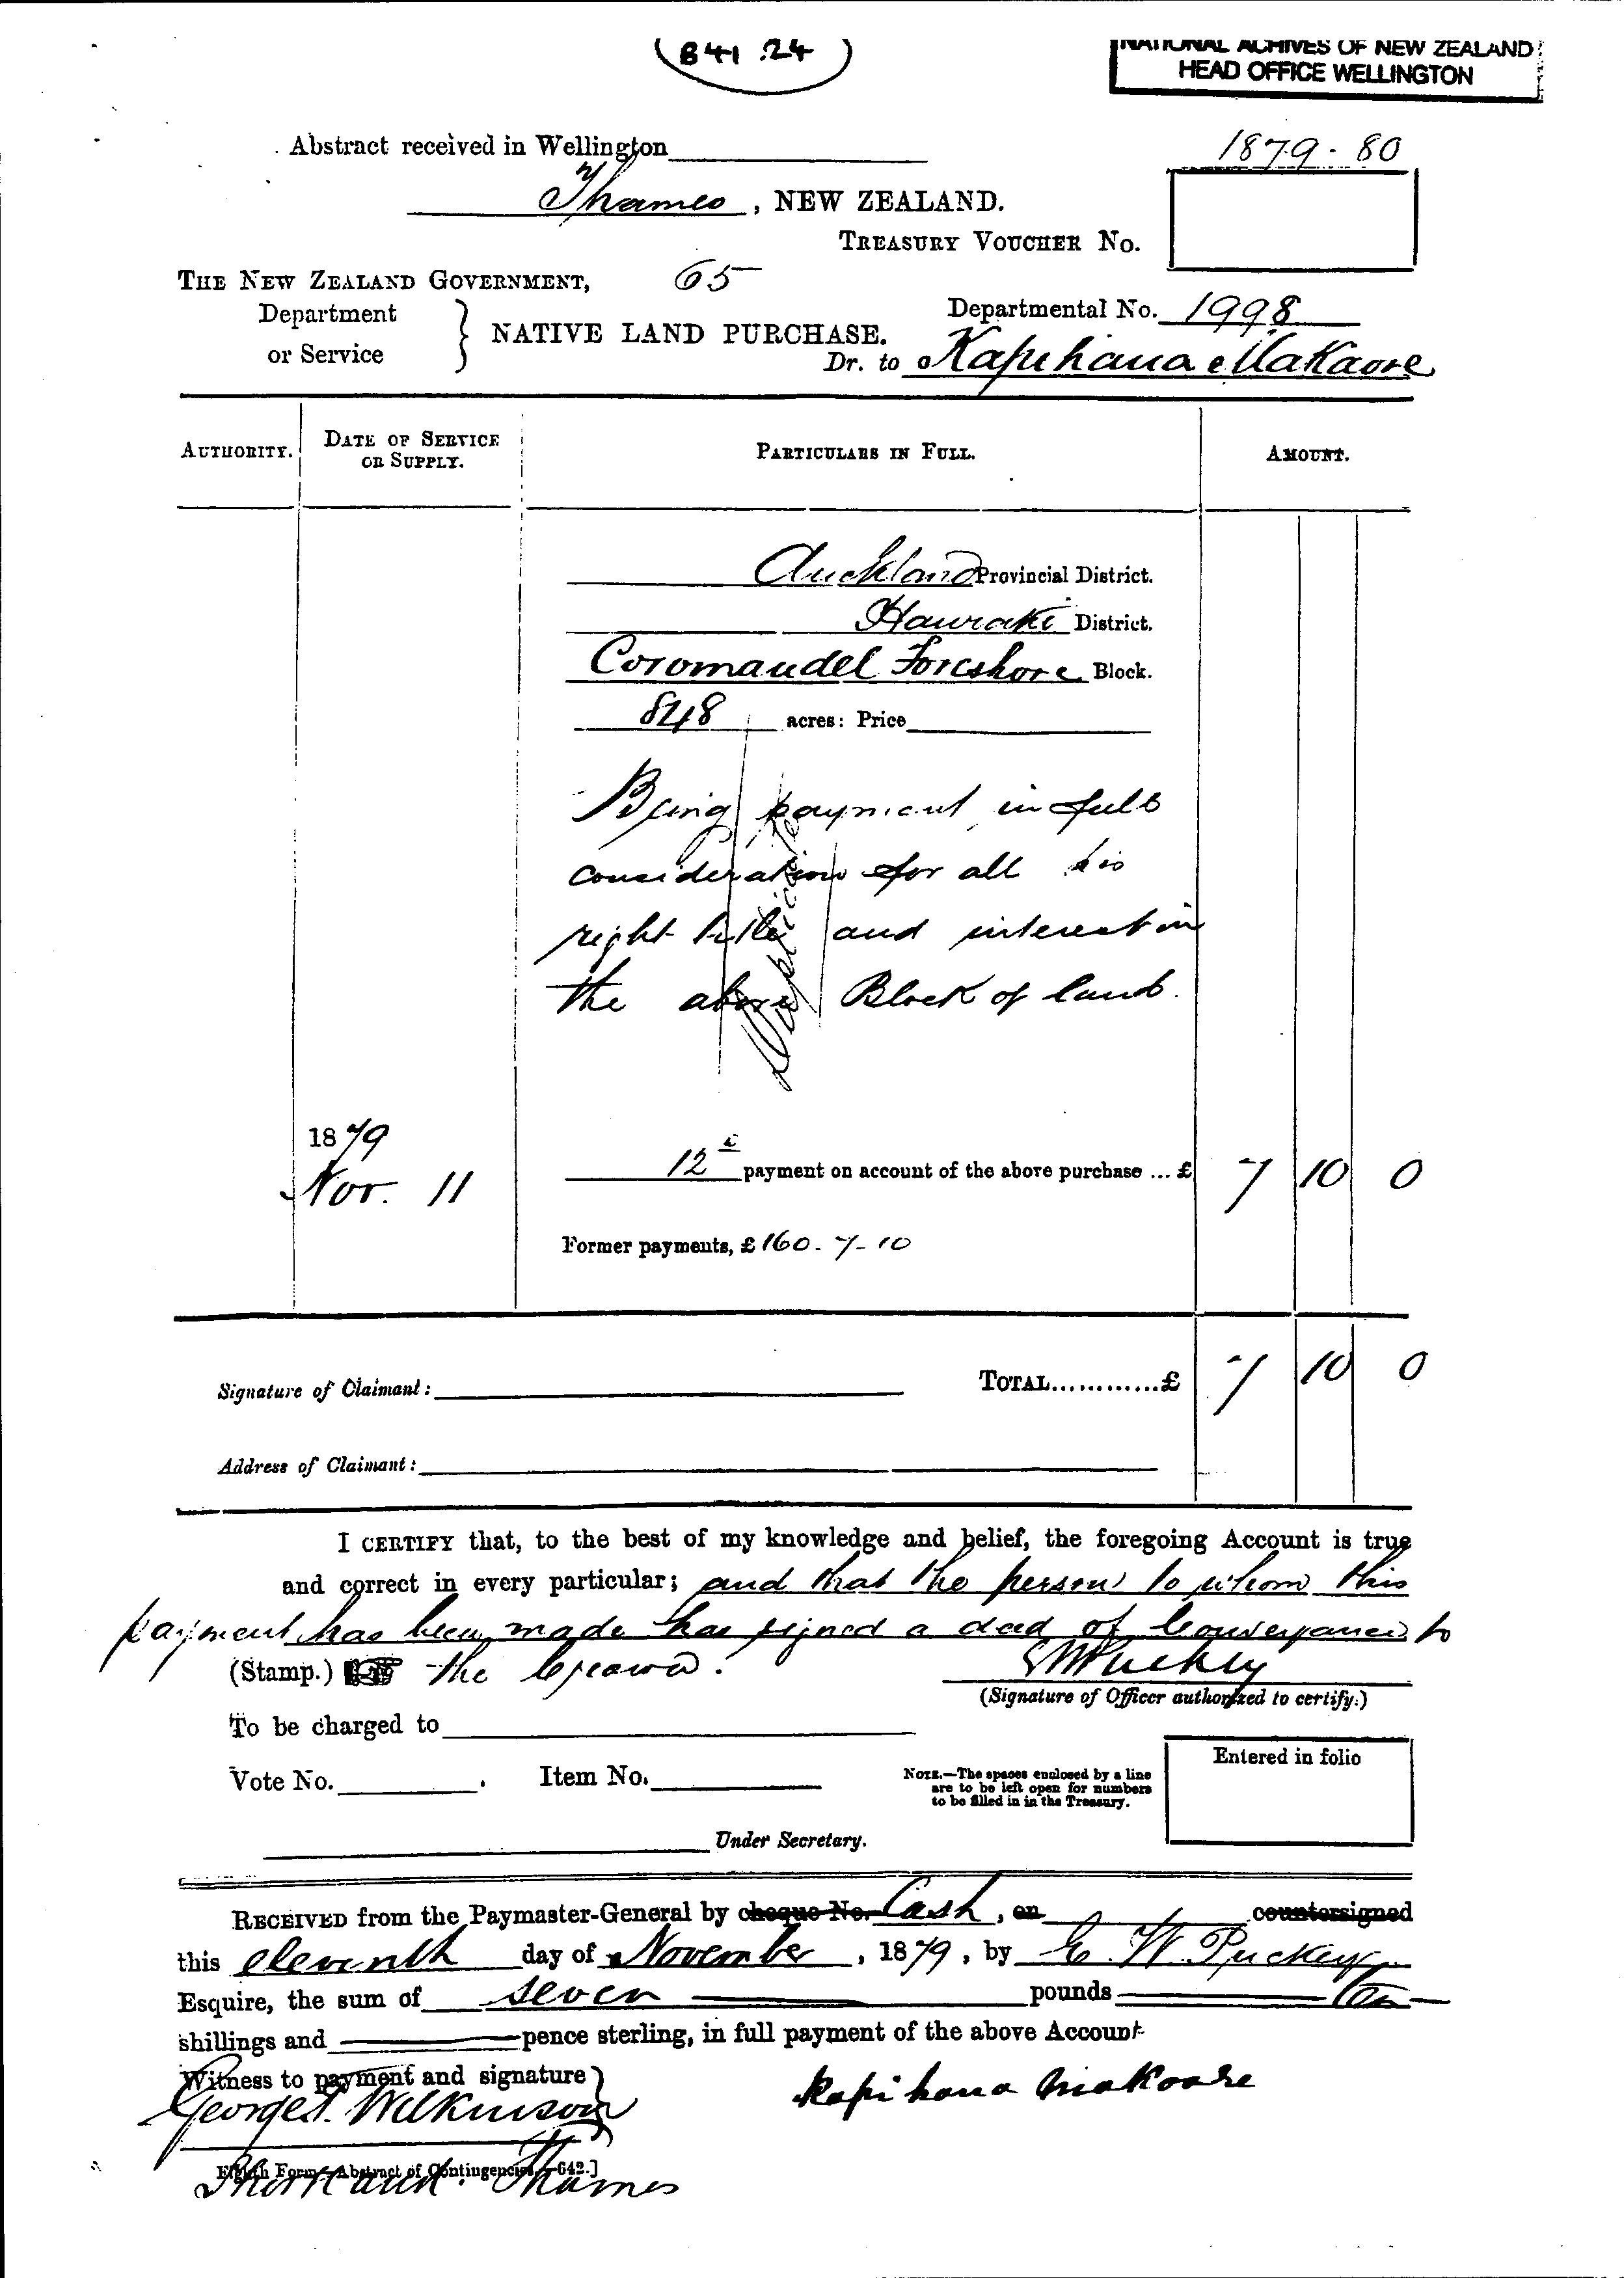 (841.24)
NATIONAL ACHIVES OF NEW ZEALAND
HEAD OFFICE WELLINGTON
Abstract received in Wellington
1879-80
Thames, NEW ZEALAND.
TREASURY VOUCHER No.
THE NEW ZEALAND GOVERNMENT, 65
Department or Service } NATIVE LAND PURCHASE.
Departmental No. 1998
Dr. to Kapihana Makaore
AUTHORITY. DATE OF SERVICE OR SUPPLY. PARTICULARS IN FULL. AMOUNT.
Auckland Provincial District.
Hauraki District.
Coromandel Foreshore Block.
848 acres: Price
Being payment in full
consideration for all his
right title and interest in
the above Block of land.
Duplicate
1879
Nov. 11 12th payment on account of the above purchase ... £ 7 10 0
Former payments, £160-7-10
Signature of Claimant: TOTAL............£ 7 10 0
Address of Claimant:
I CERTIFY that, to the best of my knowledge and belief, the foregoing Account is true
and correct in every particular; and that the person to whom this
payment has been made has signed a deed of Conveyance to
(Stamp.) the Crown. EWPuckey
(Signature of Officer authorized to certify.)
To be charged to
Vote No. Item No.
NOTE.—The spaces enclosed by a line
are to be left open for numbers
to be filled in in the Treasury.
Entered in folio
Under Secretary.
RECEIVED from the Paymaster-General by cheque No. Cash, on countersigned
this eleventh day of November, 1879, by E. W. Puckey
Esquire, the sum of seven pounds ten
shillings and pence sterling, in full payment of the above Account
Witness to payment and signature }
Kapihana Makaore
George T. Wilkinson
Eighth Form—Abstract of Contingencies.—642.]
Thames